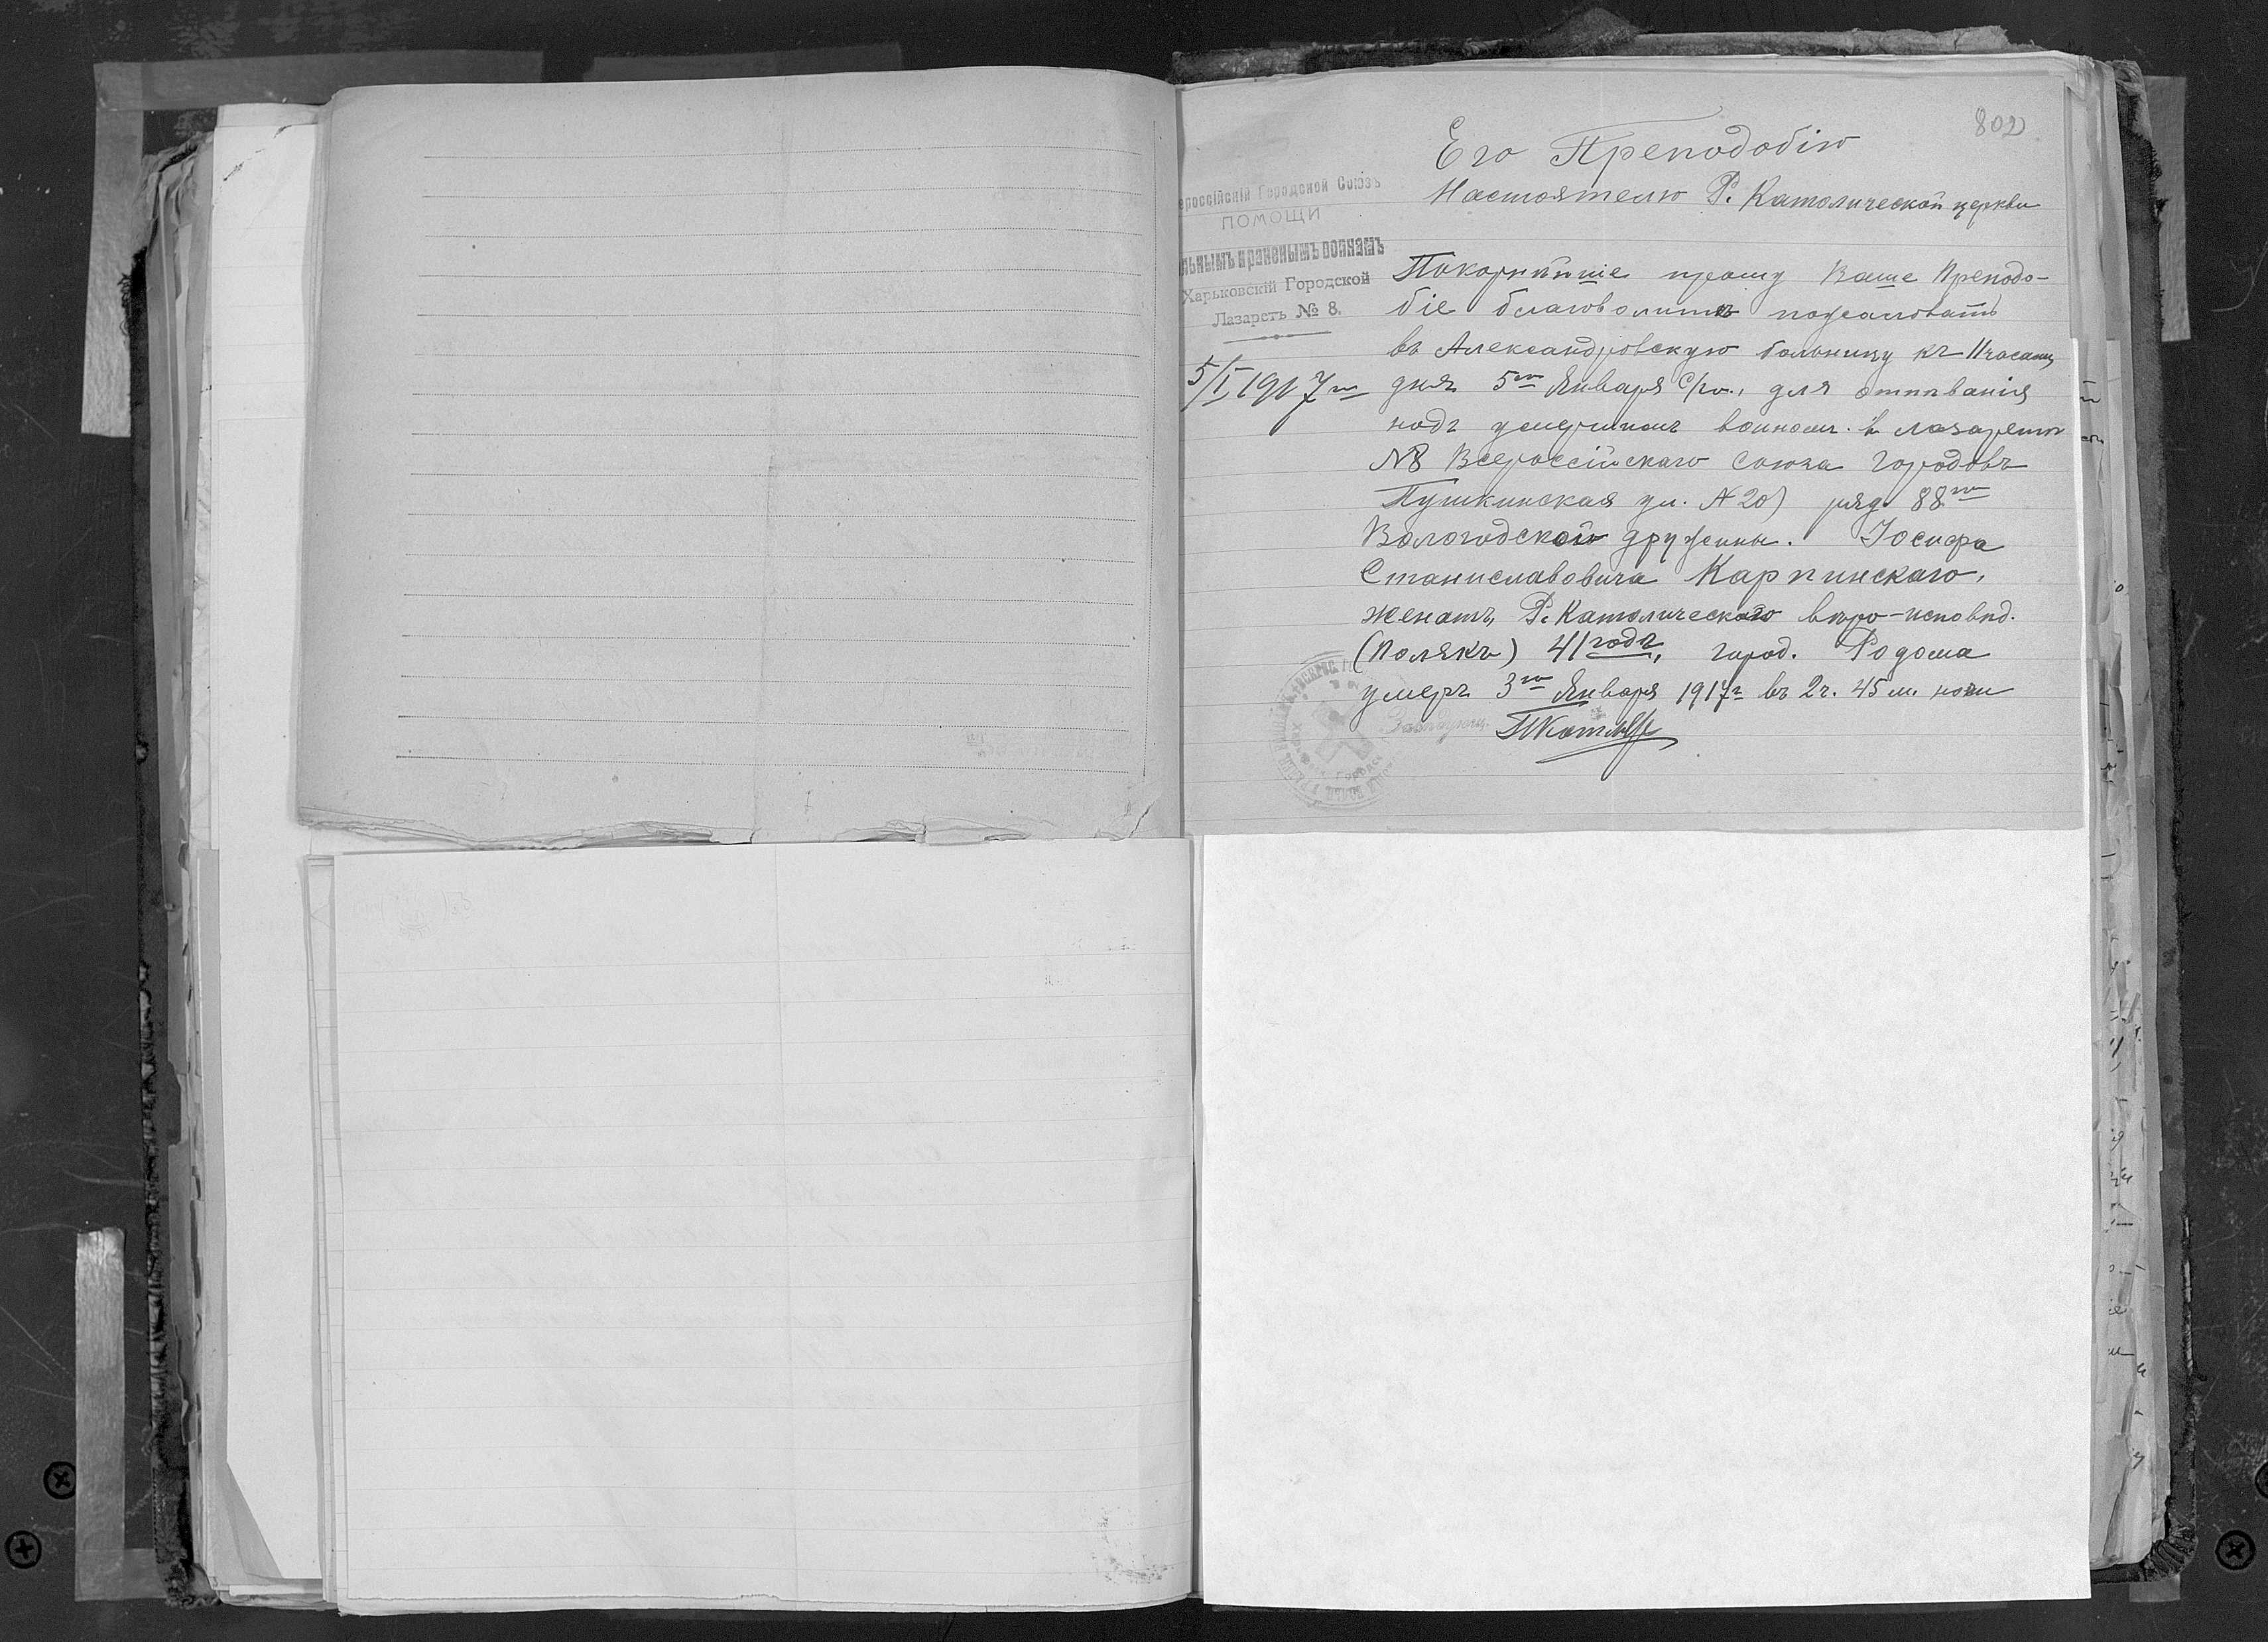 802
Его Преподобію
Настоятелю Р. Католической церкви
ероссійскій Городской Союзъ
ПОМОЩИ
льнымъ и раненымъ воинамъ
Харьковскій Городской
Лазаретъ № 8.
5/I 1917 го
Покорнѣйше прошу Ваше Преподо-
біе благоволить пожаловать
въ Александровскую больницу къ 11 часамъ
дня 5го Января с/го., для отпѣванія
надъ умершимъ воиномъ в лазаретѣ
№8 Всероссійскаго Союза Городовъ
Пушкинская ул. № 20) ряд. 88го
Вологодской дружины. Іосифа
Станиславовича Карпинскаго,
женатъ, Р. Католическаго вѣро-исповѣд.
(Полякъ) 41 года, город. Родома
умеръ 3го Января 1917г въ 2ч. 45 м. ночи
Завѣдующ.